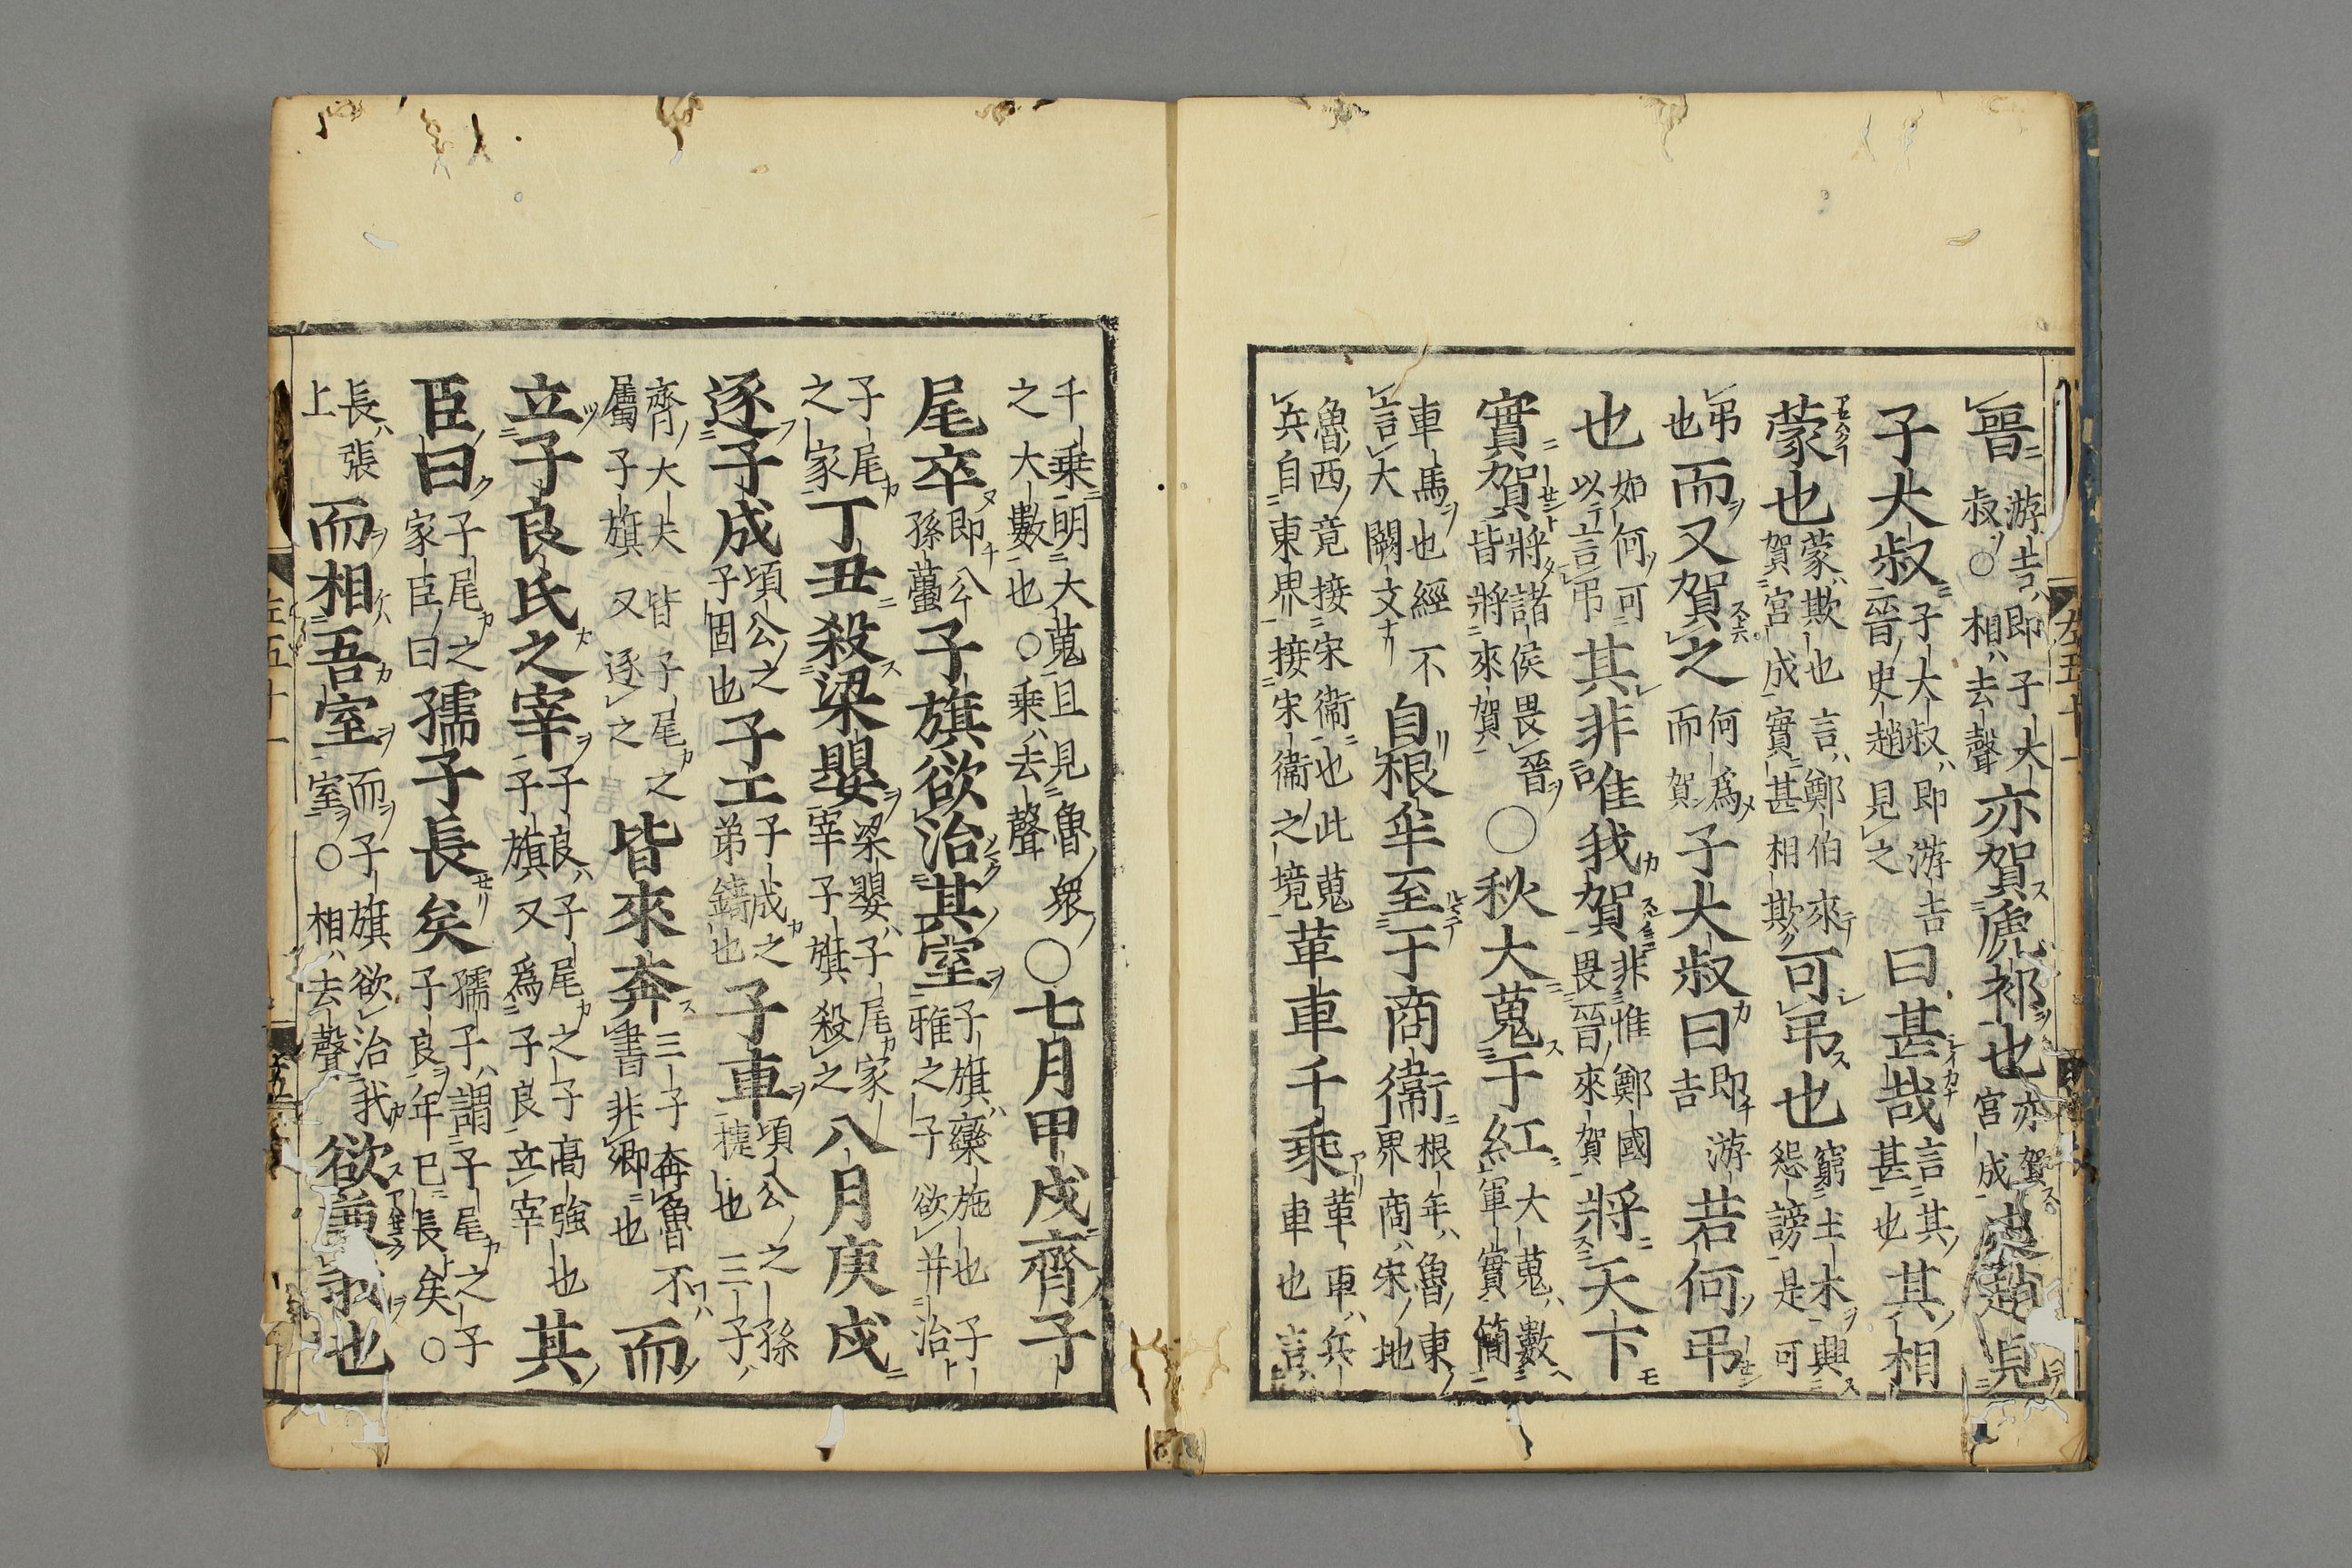 晉游吉即子大叔○相去聲亦賀虒祁也亦賀宮成史趙見
子大叔子大叔即游吉晉史趙見之曰甚哉言其甚也其相
蒙也蒙欺也言鄭伯來賀宮成實甚相欺可弔也窮土木興怨謗是可
弔也而又賀之何爲而賀子大叔曰即游吉若何弔
也如何可以言弔其非唯我賀非惟鄭國畏晉來賀將天下
實賀將諸侯畏晉皆將來賀○秋大蒐于紅大蒐數軍實簡
車馬也經不言大闕文自根牟至于商衞根年魯東界商宋地
魯西竟接宋衞也此蒐兵自東界接宋衞之境革車千乘革車兵車也言
千乘明大蒐且見魯衆之大數也○乘去聲○七月甲戌齊子
尾卒即公孫蠆子旗欲治其室子旗欒施也子雅之子欲并治
子尾之家丁丑殺梁嬰梁嬰子尾家宰子旗殺之八月庚戌
逐子成頃公之子固也子工子成之弟鑄也子車頃公之孫捷也三子
齊大夫皆子尾之屬子旗又逐之皆來奔三子奔魯不書非卿也而
立子良氏之宰子良子尾之子高強也子旗又爲子良立宰其
臣曰子尾之家臣曰孺子長矣孺子謂子尾之子子良年已長矣○
長張上而相吾室而子旗欲治我室○相去聲欲兼我也
左五十一
左五十一